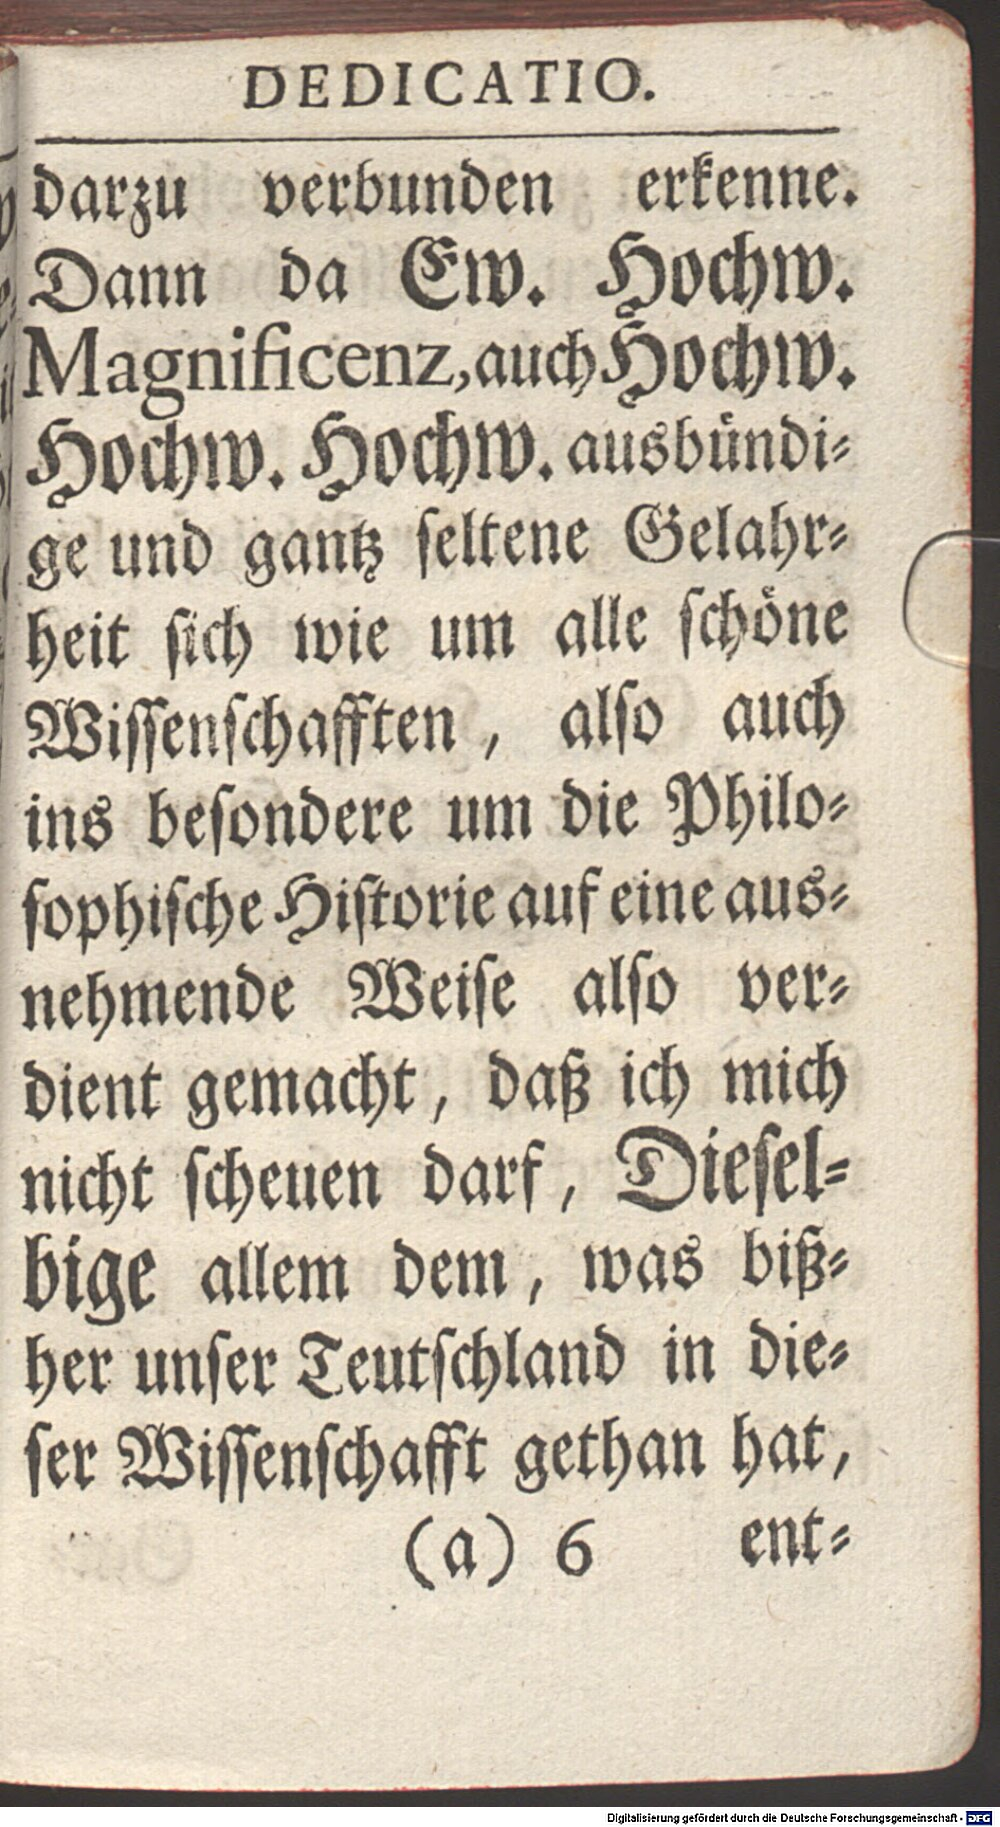 DEDICATIO.
darzu verbunden erkenne.
Dann da Ew. Hochw.
Magnificenz, auch Hochw.
Hochw. Hochw. ausbündi-
ge und gantz ſeltene Gelahr-
heit ſich wie um alle ſchöne
Wiſſenſchafften, alſo auch
ins beſondere um die Philo-
ſophiſche Hiſtorie auf eine aus-
nehmende Weiſe alſo ver-
dient gemacht, daß ich mich
nicht ſcheuen darf, Dieſel-
bige allem dem, was biß-
her unſer Teutſchland in die-
ſer Wiſſenſchafft gethan hat,
(a) 6 ent-
Digitalisierung gefördert durch die Deutsche Forschungsgemeinschaft - DFG